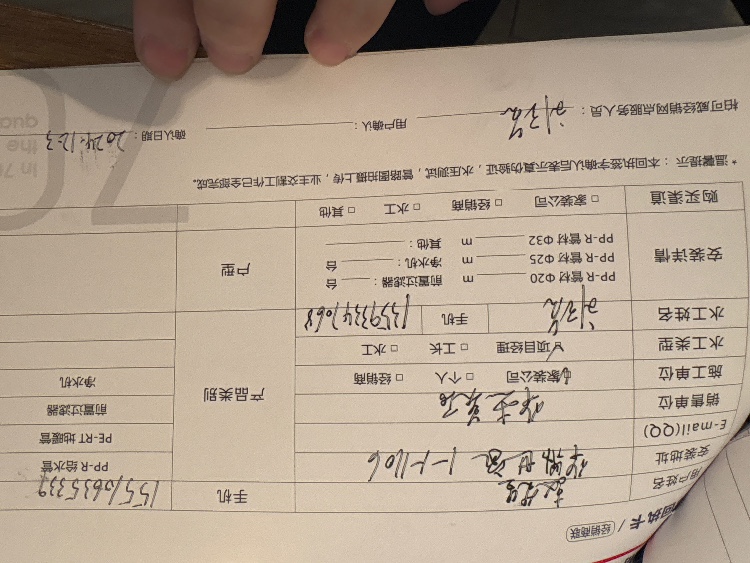 回执卡 / 经销商联
用户姓名 手机 15510635339
安装地址 1-1-1106
E-mail(QQ)
销售单位
施工单位 ☑家装公司 □ 个人 □ 经销商
水工类型 ☑项目经理 □ 工长 □ 水工
水工姓名 手机 13593347068
产品类别
PP-R 给水管
PE-RT 地暖管
前置过滤器
净水机
安装详情
PP-R 管材 Φ20 m 前置过滤器: 台
PP-R 管材 Φ25 m 净水机: 台
PP-R 管材 Φ32 m 其他:
户型
购买渠道 □ 家装公司 □ 经销商 □ 水工 □ 其他
* 温馨提示:本回执签字确认后表示真伪验证,水压测试,管路图拍摄上传,业主交割工作已全部完成。
柏可威经销网点服务人员: 用户确认: 确认日期: 2024.12.3
70
in 70
the
qua